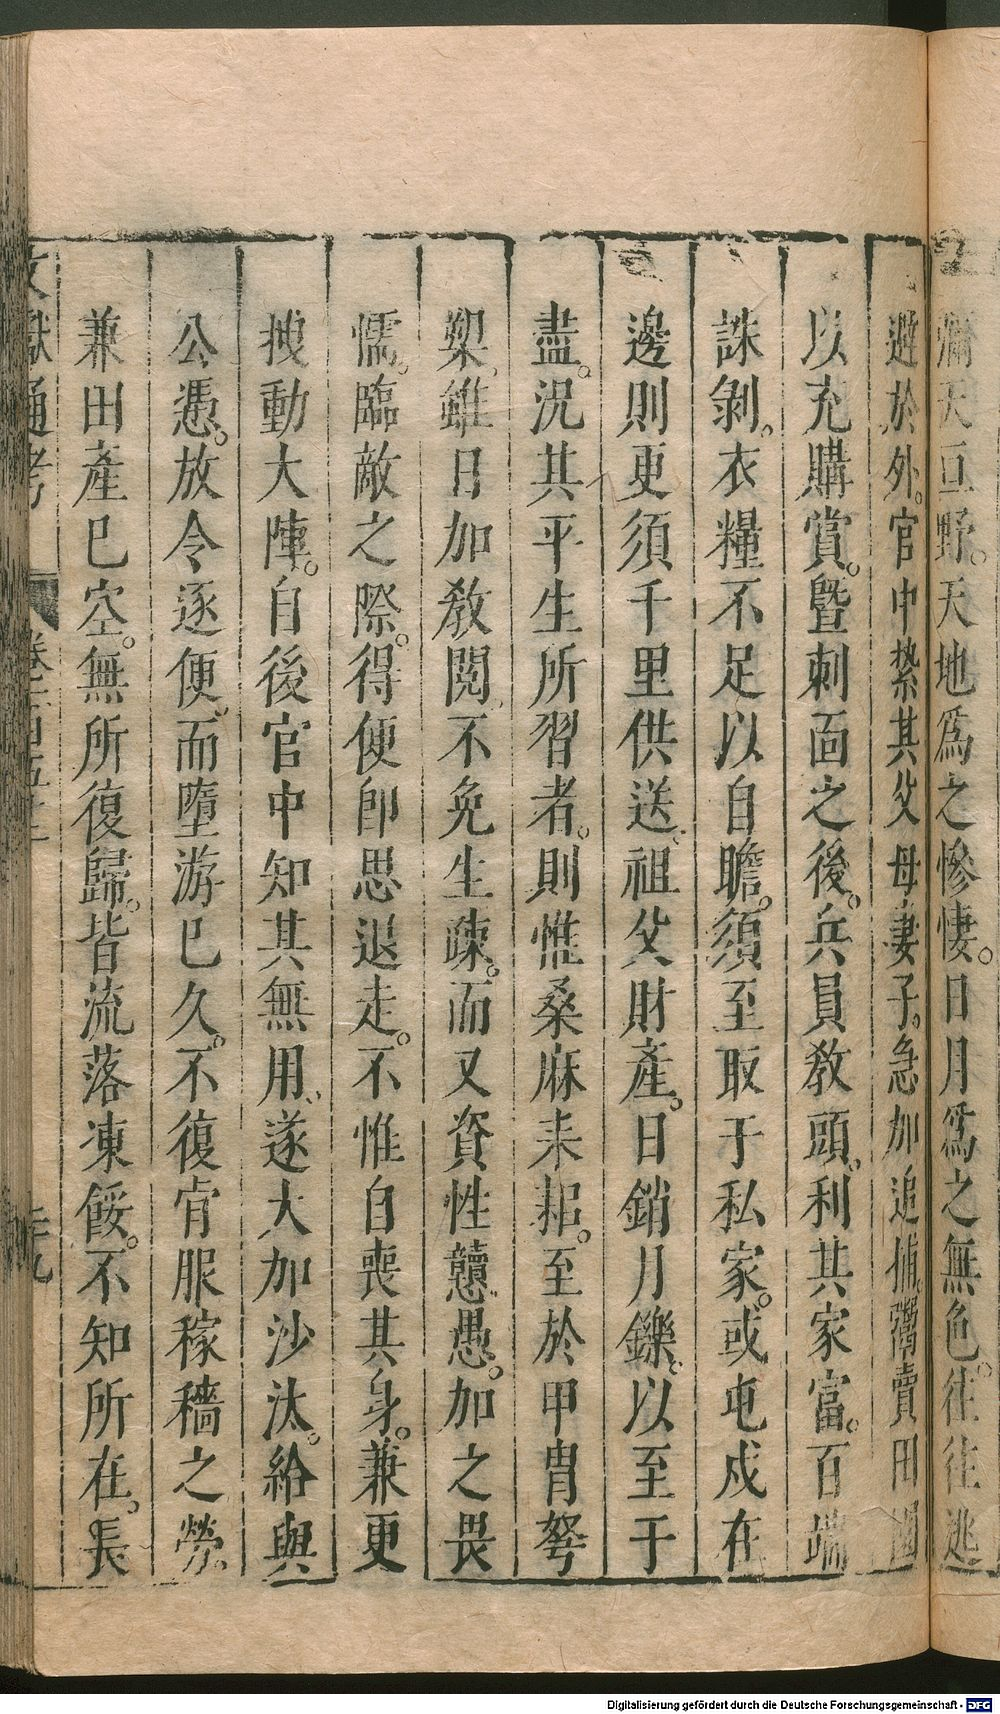 彌天亘野。天地爲之慘悽。日月爲之無色。往往逃
避於外。官中縶其父母妻子。急加追捕。鬻賣田園
以充購賞。曁刺面之後。兵員教頭。利其家富。百端
誅剝。衣糧不足以自贍。須至取于私家。或屯戍在
邊則更須千里供送。祖父財產。日銷月鑠。以至于
盡。況其平生所習者。則惟桑麻耒耜。至於甲胄弩
槊。雖日加教閱。不免生疎。而又資性戇愚。加之畏
懦。臨敵之際。得便卽思退走。不惟自喪其身。兼更
拽動大陣。自後官中知其無用。遂大加沙汰。給與
公憑。放令逐便。而墮游已久。不復肯服稼穡之勞。
兼田產已空。無所復歸。皆流落凍餒。不知所在。長
文獻通考 卷一百五十 三十九
Digitalisierung gefördert durch die Deutsche Forschungsgemeinschaft - DFG